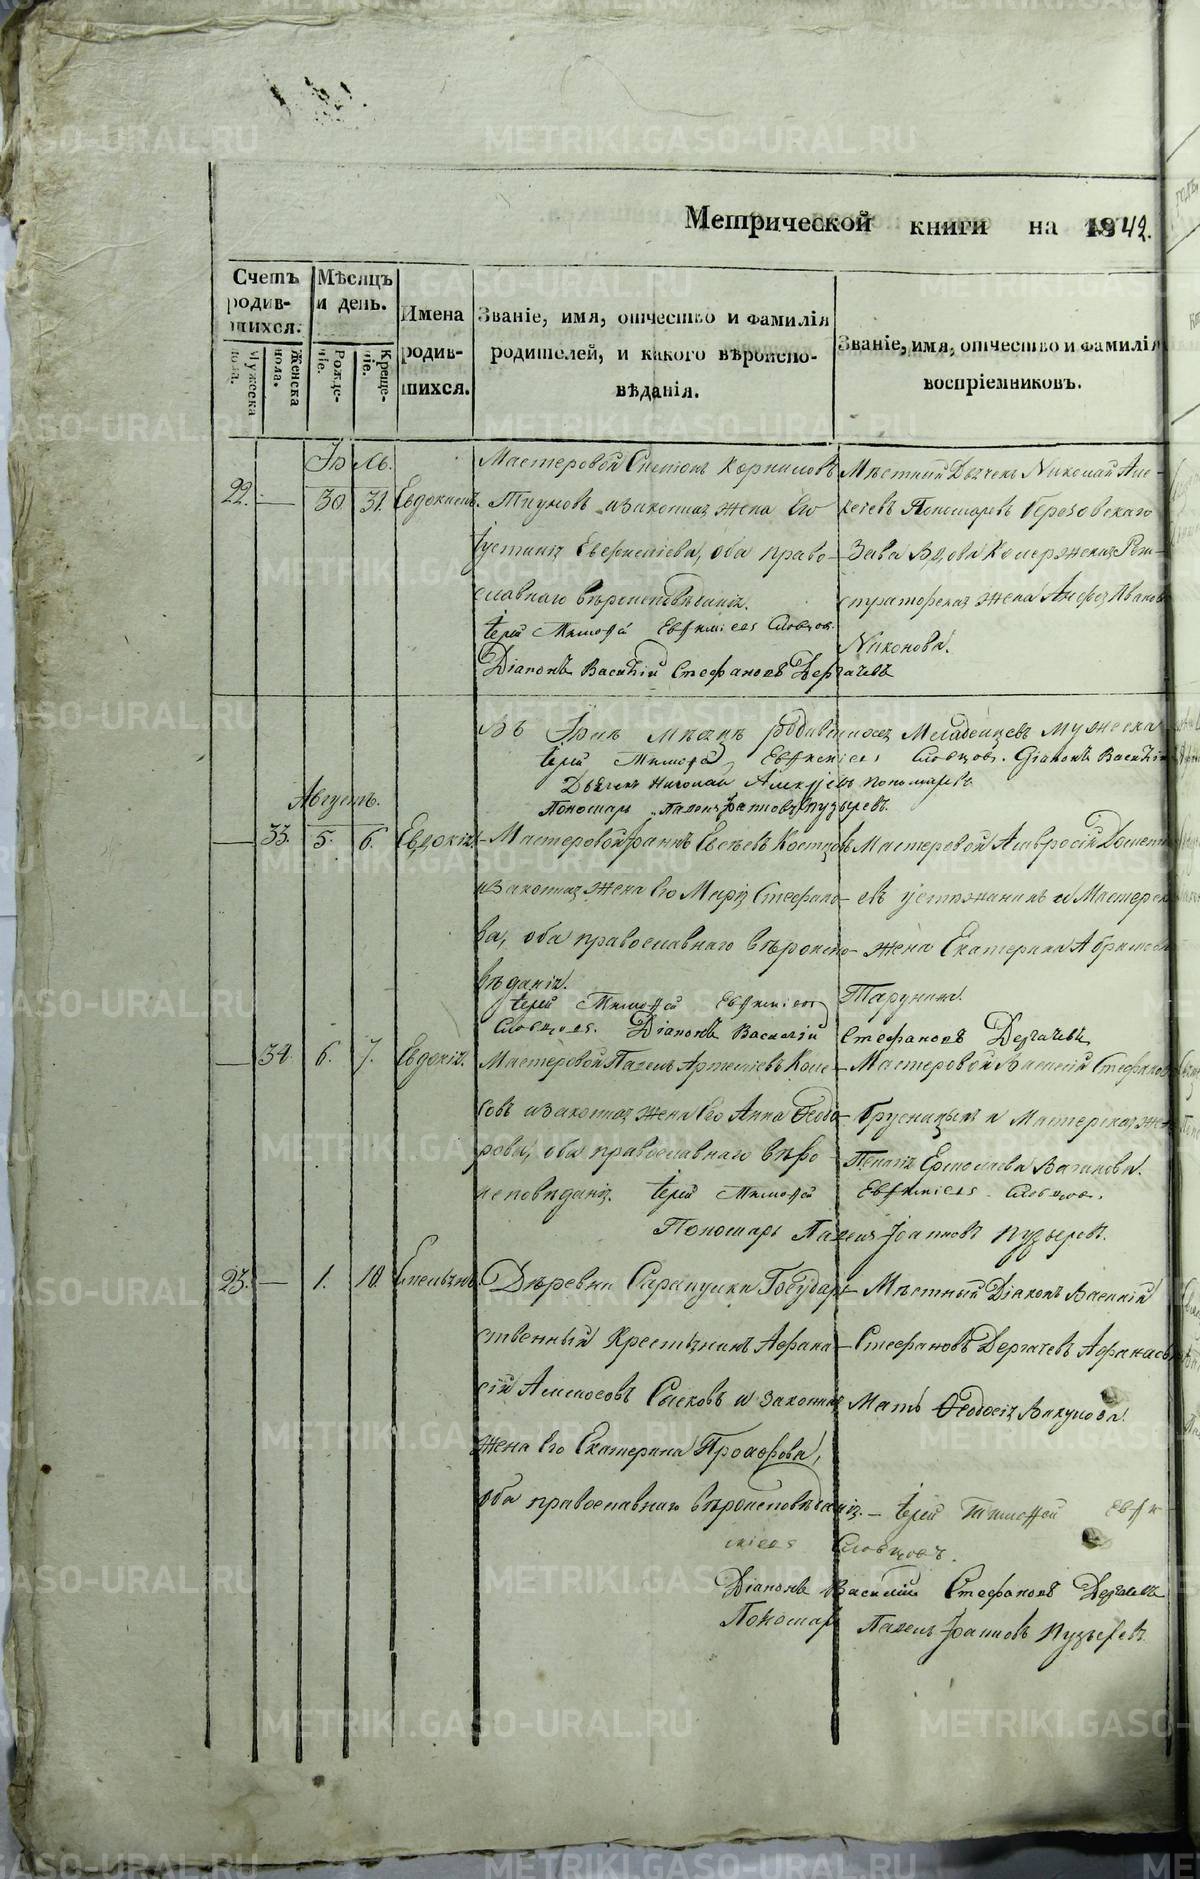 Метрической книги на 1842.
Счетъ родив-шихся.
Мѣсяцъ и день.
Имена родив-шихся.
Званіе, имя, отчество и фамилія родителей, и какого вѣроиспо-вѣданія.
Званіе, имя, отчество и фамилія воспріемниковъ.
Мужеска пола.
Женска пола.
Рожде-ніе.
Креще-ніе.
Іюль.
22. — 30. 31. Евдокимъ.
Мастеровой Симеонъ Корниловъ
Тиуновъ и законная жена Его
Іустина Евфиміева, оба право-
славнаго вѣроисповѣданія.
Іерей Тимофей Евфиміевъ Словцовъ.
Діаконъ Василій Стефановъ Дергачевъ
Мѣстный Дьячекъ Николай Але-
ксіевъ Пономаревъ Березовскаго
Зава Вдова Коллежская Реги-
страторская жена Анфиза Иванова
Никонова.
Въ Іюлѣ мѣсяцѣ родившихся Младенцевъ мужеска
Іерей Тимофей Евфиміевъ Словцовъ. Діаконъ Василій
Дьячекъ Николай Алексіевъ Пономаревъ
Пономарь Павелъ Іоанновъ Пузыревъ.
Августъ.
— 33. 5. 6. Евдокія.
Мастеровой Іоаннъ Евсѣевъ Костцовъ
и законная жена Его Марія Стефано-
ва, оба православнаго вѣроиспо-
вѣданія.
Іерей Тимофей Евфиміевъ
Словцовъ. Діаконъ Василій Стефановъ Дергачевъ
Мастеровой Амвросій Домети-
евъ Устюжанинъ и Мастерская
жена Екатерина Абрамова
Тарунина.
— 34. 6. 7. Евдокія.
Мастеровой Павелъ Артеміевъ Коле-
совъ и законная жена Его Анна Ѳеодо-
рова, оба православнаго вѣро-
исповѣданія. Іерей Тимофей Евфиміевъ Словцовъ.
Пономарь Павелъ Іоанновъ Пузыревъ.
Мастеровой Василій Стефановъ
Брусницынъ и Мастерская жена
Пелагія Ермолаева Ватинова.
23. — 1. 10. Емельянъ.
Деревни Сарапулки Государ-
ственный Крестьянинъ Афана-
сій Аммосовъ Сысковъ и законная
жена Его Екатерина Прокофьева,
оба православнаго вѣроисповѣданія. — Іерей Тимофей Евфи-
міевъ Словцовъ.
Діаконъ Василій Стефановъ Дергачевъ
Пономарь Павелъ Іоанновъ Пузыревъ
Мѣстный Діаконъ Василій
Стефановъ Дергачевъ Афанасья
Мать Ѳеодосія Вакулова.
METRIKI.GASO-URAL.RU